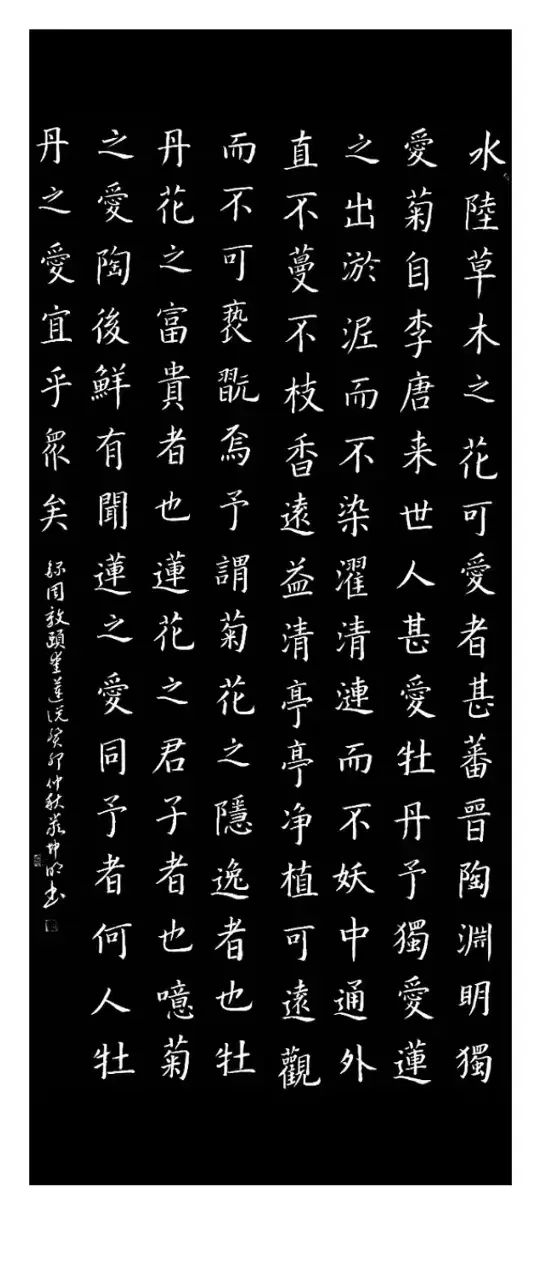 水陸草木之花可愛者甚蕃晉陶淵明獨
愛菊自李唐来世人甚愛牡丹予獨愛蓮
之出淤泥而不染濯清漣而不妖中通外
直不蔓不枝香遠益清亭亭净植可遠觀
而不可亵翫焉予謂菊花之隱逸者也牡
丹花之富貴者也蓮花之君子者也噫菊
之愛陶後鮮有聞蓮之愛同予者何人牡
丹之愛宜乎眾矣
錄周敦頤愛蓮說癸卯仲秋坤明书